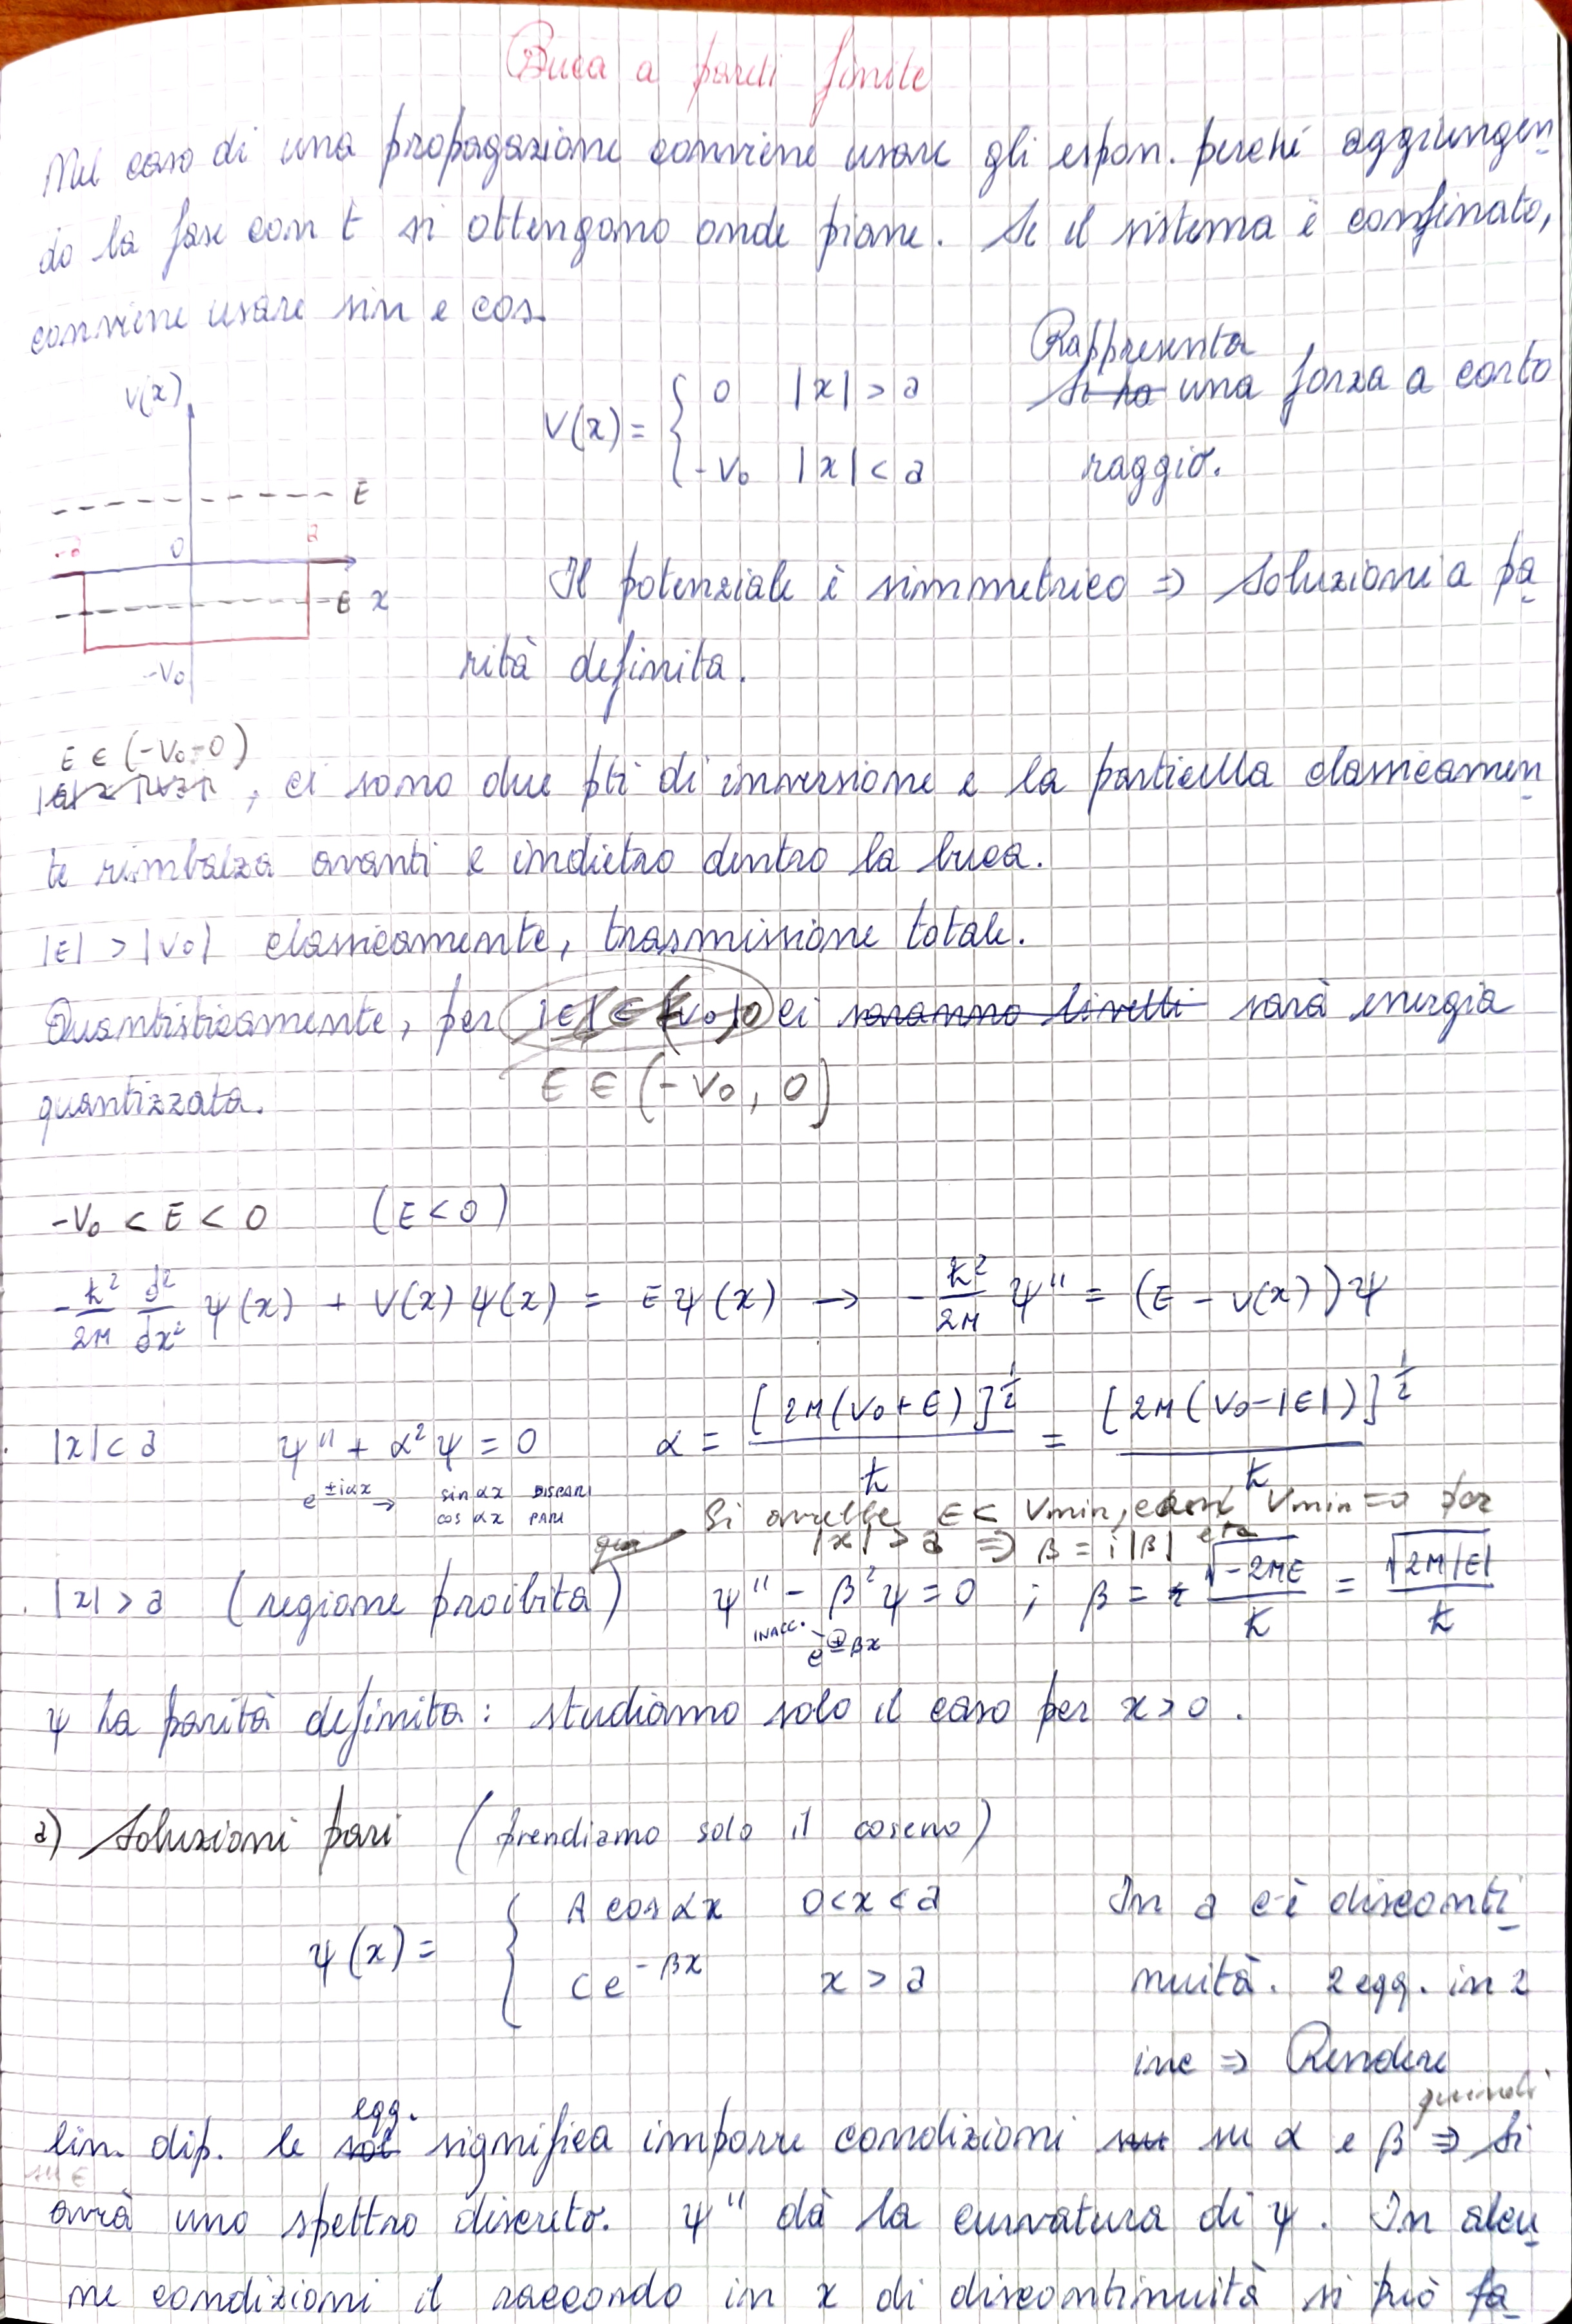 Buca a pareti finite
Nel caso di una propagazione conviene usare gli espon. perché aggiungen
do la fase con t si ottengono onde piane. Se il sistema è confinato,
conviene usare sin e cos.
V(x)
V(x) = { 0 |x| > a
-V₀ |x| < a
Rappresenta
~~Si ha~~ una forza a corto
raggio.
E
-a 0 a
E x
-V₀
Il potenziale è simmetrico ⇒ Soluzioni a pa
rità definita.
E ∈ (-V₀, 0)
, ci sono due pti di inversione e la particella classicamen
te rimbalza avanti e indietro dentro la buca.
|E| > |V₀| classicamente, trasmissione totale.
Quantisticamente, per ~~|E| ∈ (V₀, 0)~~ ci ~~saranno livelli~~ sarà energia
E ∈ (-V₀, 0)
quantizzata.
-V₀ < E < 0 (E < 0)
-ℏ²/2M d²/dx² ψ(x) + V(x) ψ(x) = E ψ(x) → -ℏ²/2M ψ'' = (E - V(x)) ψ
|x| < a ψ'' + α²ψ = 0 α = [2M(V₀+E)]^½ / ℏ = [2M(V₀-|E|)]^½ / ℏ
e^±iαx → sin αx DISPARI
cos αx PARI
Si avrebbe E < Vmin, con Vmin = 0 per
|x| > a ⇒ β = i|β| etc
qui
|x| > a (regione proibita) ψ'' - β²ψ = 0 ; β = √-2ME / ℏ = √2M|E| / ℏ
INACC.
e^±βx
ψ ha parità definita: studiamo solo il caso per x > 0.
a) Soluzioni pari (prendiamo solo il coseno)
ψ(x) = { A cos αx 0 < x < a
C e^-βx x > a
In a c'è disconti
nuità. 2 eqq. in 2
inc ⇒ Rendere
quindi
eqq.
lin. dip. le ~~sol~~ significa imporre condizioni ~~su~~ su α e β ⇒ Si
su E
avrà uno spettro discreto. ψ'' dà la curvatura di ψ. In alcu
ne condizioni il raccordo in x di discontinuità si può fa